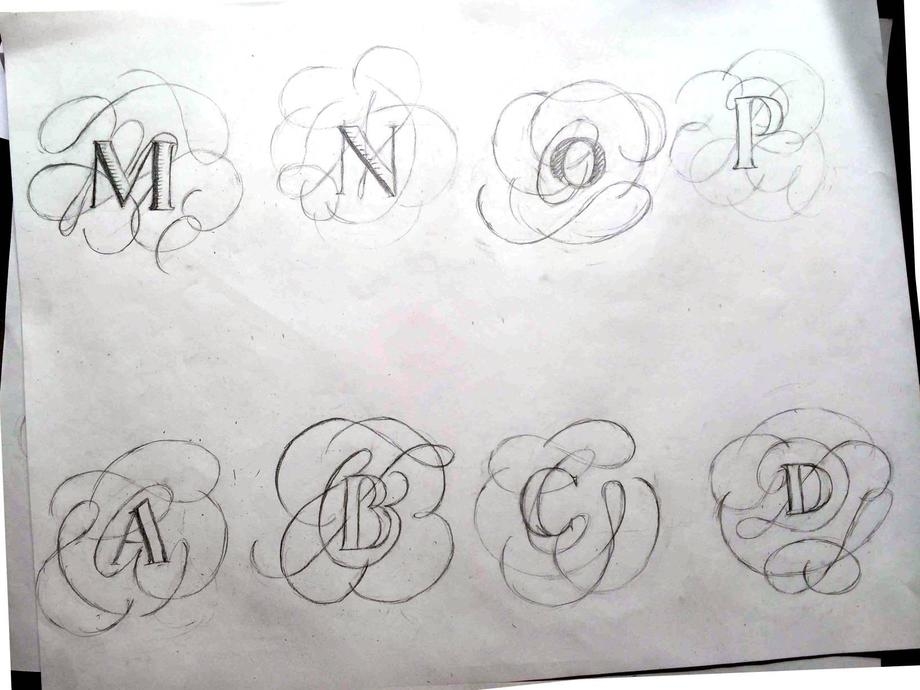 M N O P
A B C D